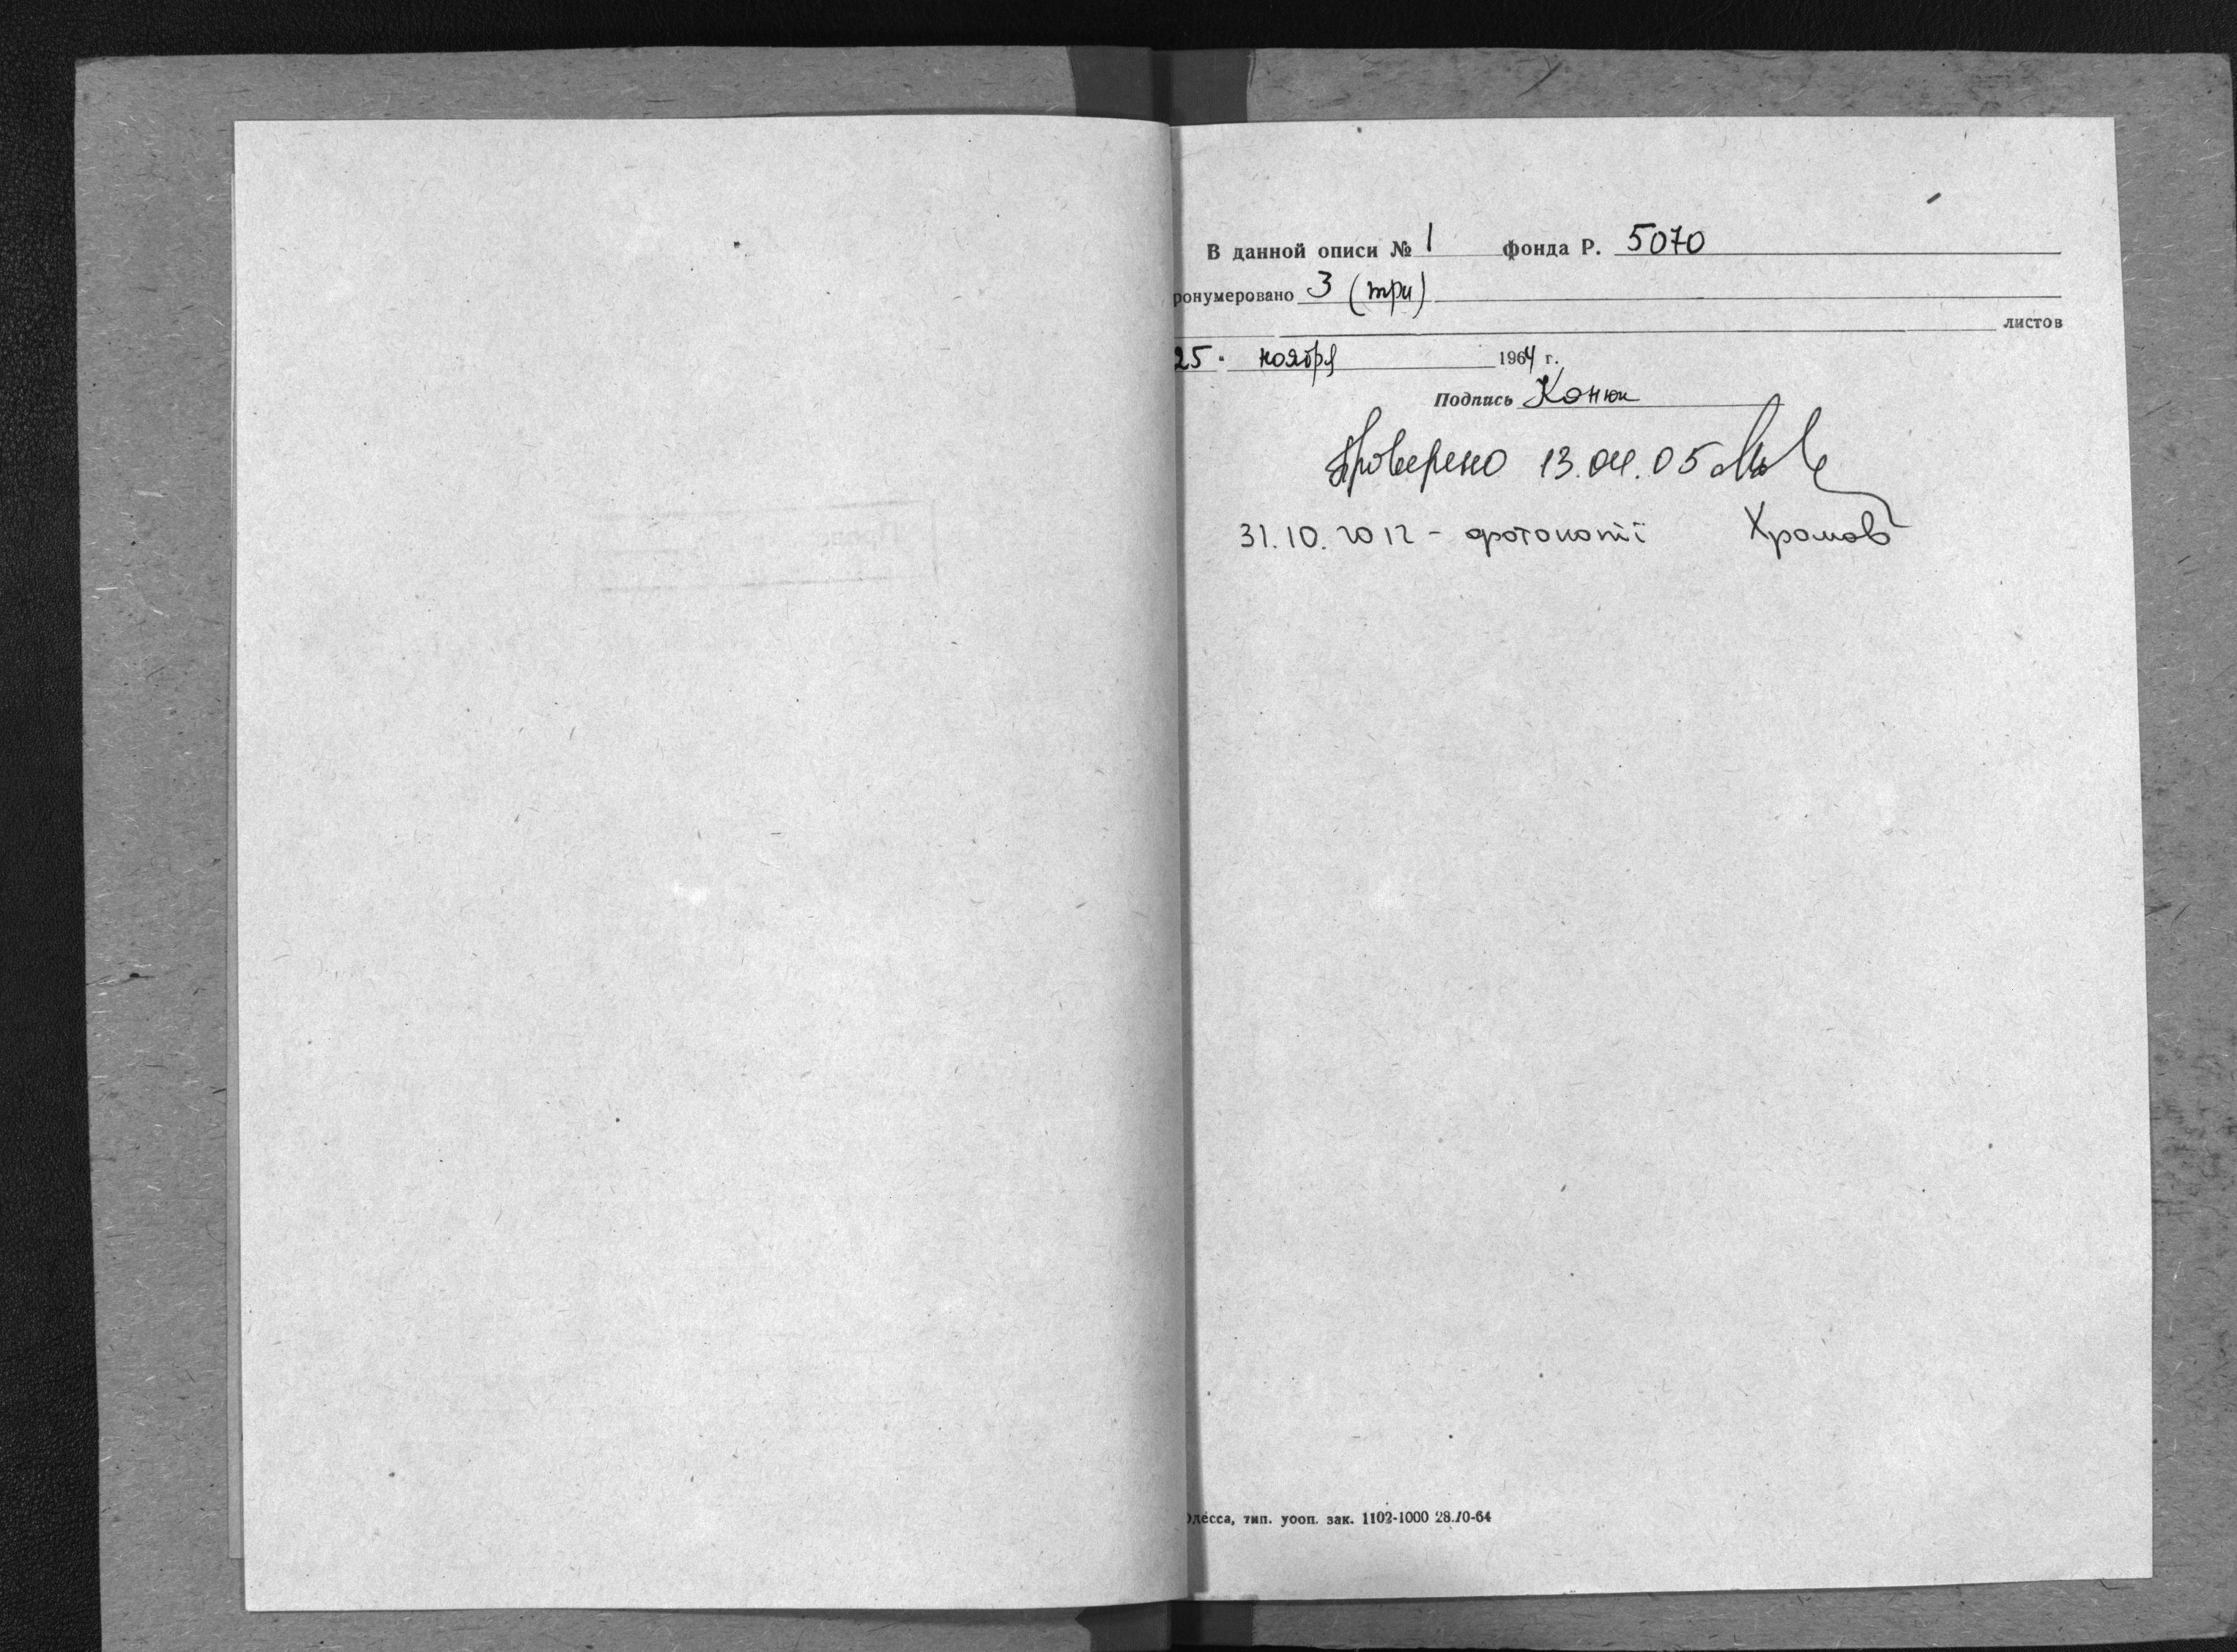 В данной описи № 1 фонда Р. 5070
ронумеровано 3 (три)
листов
25 " ноября 1964 г.
Подпись Конюк
Проверено 13.04.05
31.10.2012 - фотокопії Хромов
Одесса, тип. уооп. зак. 1102-1000 28.10-64